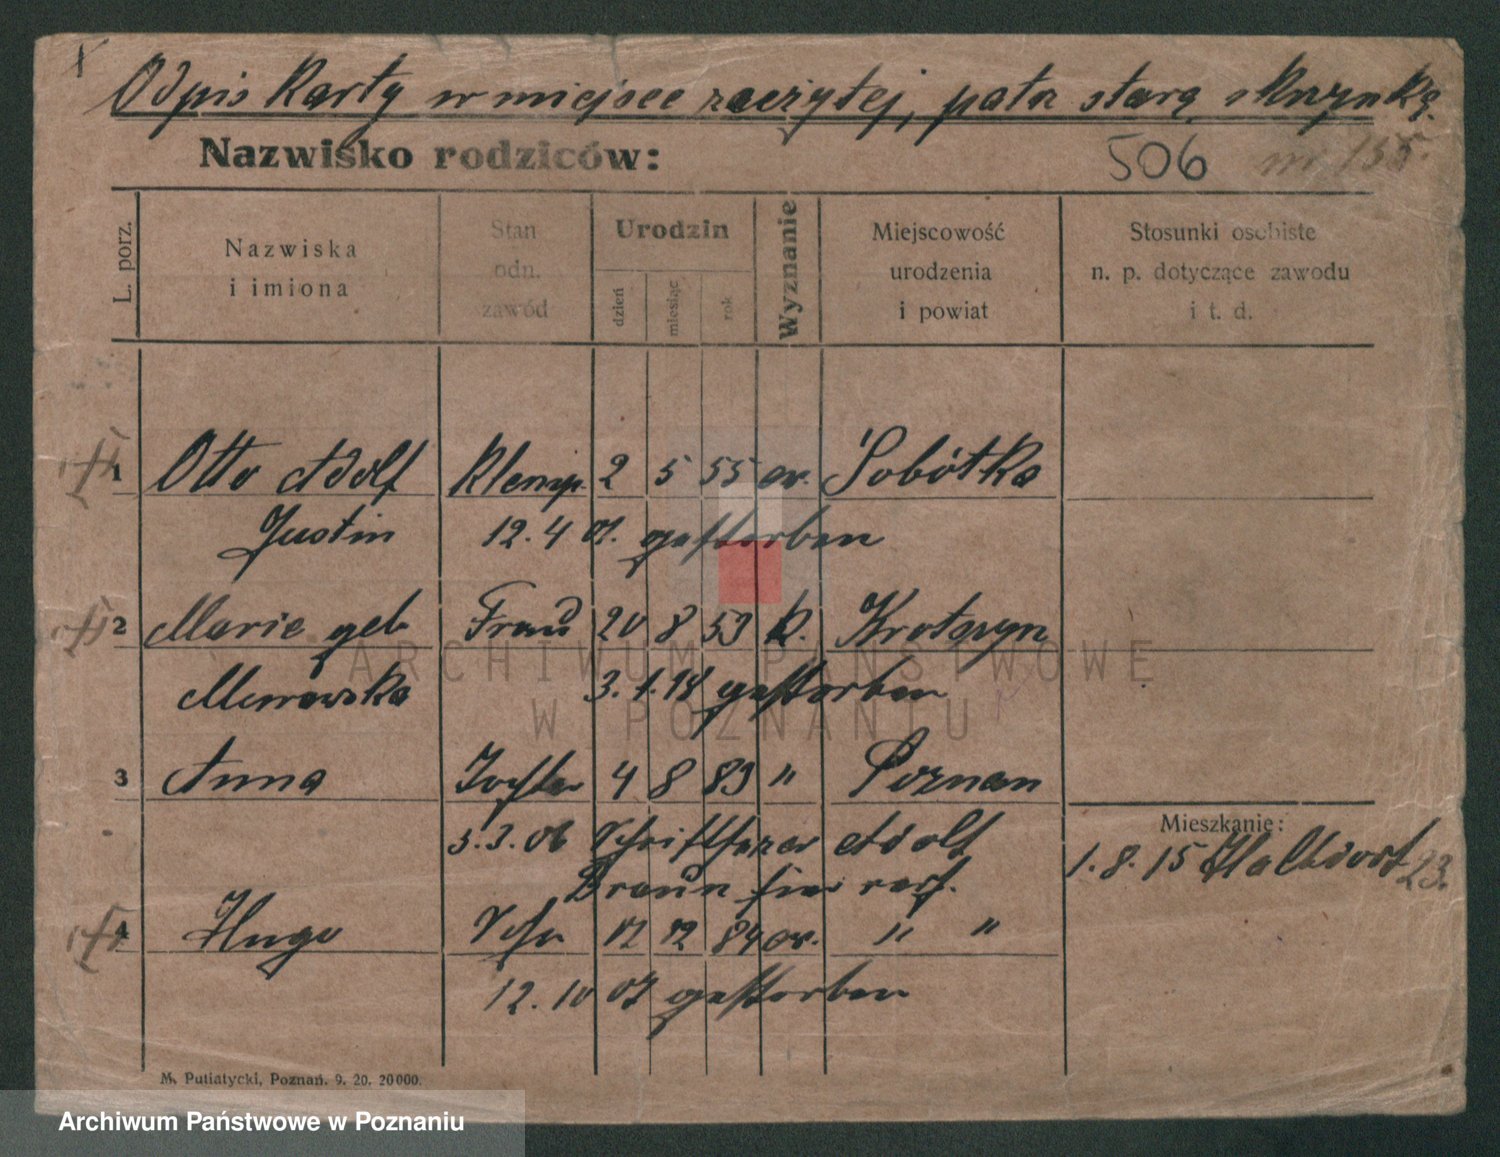 Odpis Karty w miejsce zaczytej, patrz starą skrzynkę
nr 155.
Nazwisko rodziców:
506
L. porz.
Nazwiska
i imiona
Stan
odn.
zawód
Urodzin
dzień
miesiąc
rok
Wyznanie
Miejscowość
urodzenia
i powiat
Stosunki osobiste
n. p. dotyczące zawodu
i t. d.
1 Otto Adolf Klemp. 2 5 55 ev. Sobótka
Justin 12. 4 01. gestorben
2 Marie geb Frau 20 8 53 k. Krotoszyn
3. 1. 18 gestorben
3 Anna Tochter 4 8 83 " Poznan
5. 3. 06 Schriftsetzer Adolf
Braun
Mieszkanie:
1. 8. 15 23.
4 Hugo Sohn 12 84 ev. " "
12. 10 07 gestorben
M. Putiatycki, Poznań. 9. 20. 20000.
ARCHIWUM PAŃSTWOWE
W POZNANIU
Archiwum Państwowe w Poznaniu